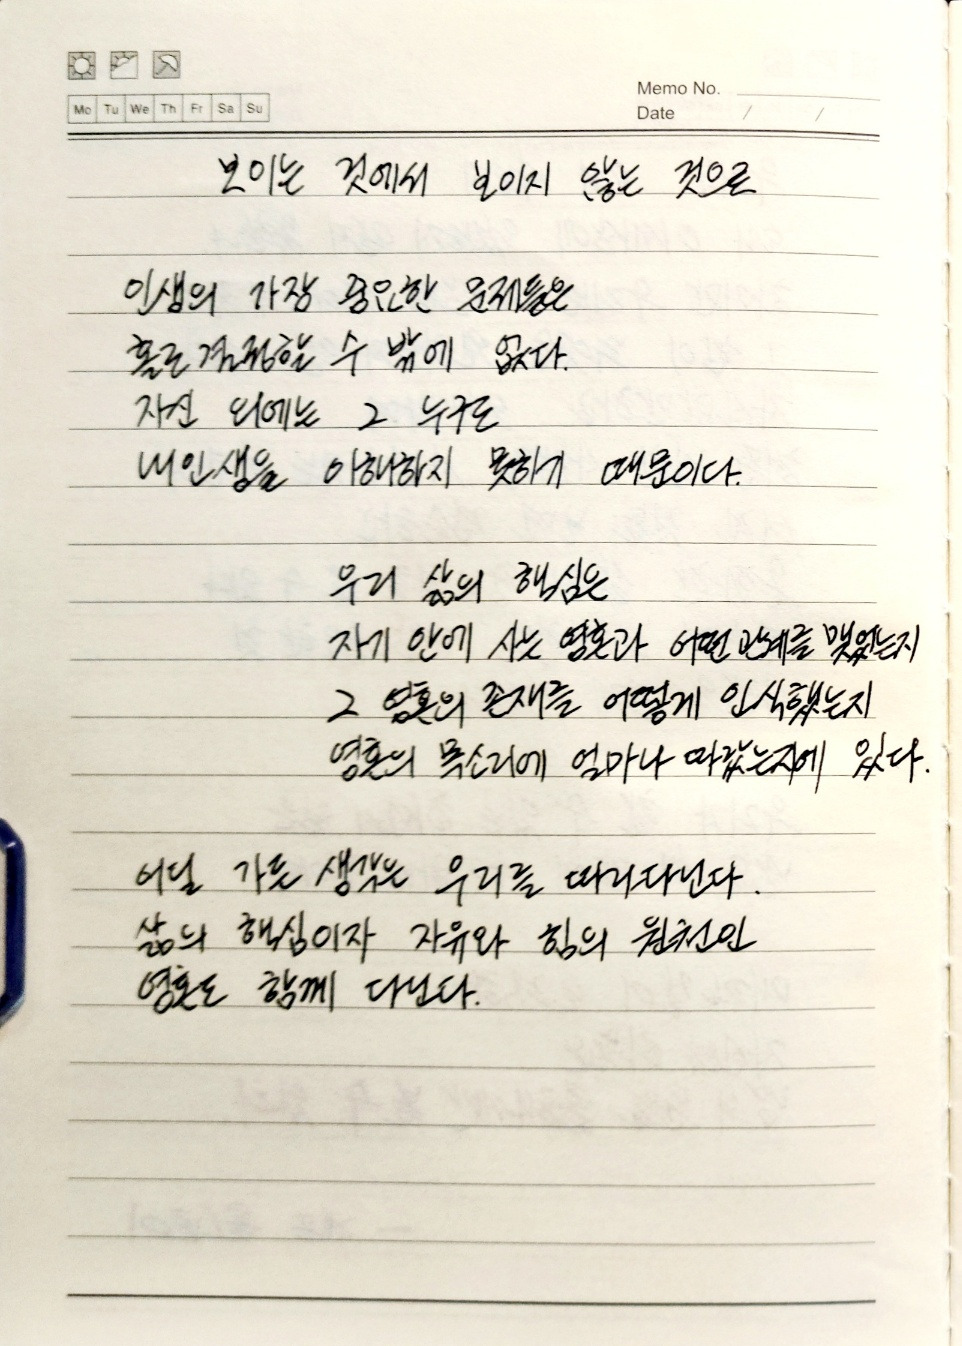 Mo Tu We Th Fr Sa Su
Memo No.
Date / /
보이는 것에서 보이지 않는 것으로
인생의 가장 중요한 문제들은
홀로 결정할 수 밖에 없다.
자신 외에는 그 누구도
내 인생을 이해하지 못하기 때문이다.
우리 삶의 핵심은
자기 안에 사는 영혼과 어떤 관계를 맺었는지
그 영혼의 존재를 어떻게 인식했는지
영혼의 목소리에 얼마나 따랐는지에 있다.
어딜 가든 생각은 우리를 따라다닌다.
삶의 핵심이자 자유와 힘의 원천인
영혼도 함께 다닌다.